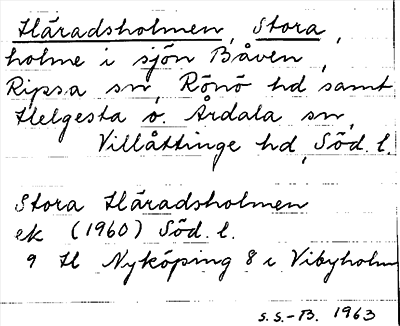 Häradsholmen, Stora,
holme i sjön Båven,
Ripsa sn, Rönö hd samt
Helgesta o. Årdala sn,
Villåttinge hd, Söd. l.
Stora Häradsholmen
ek (1960) Söd. l.
9 H Nyköping 8 i Vibyholm
S.S.-B. 1963